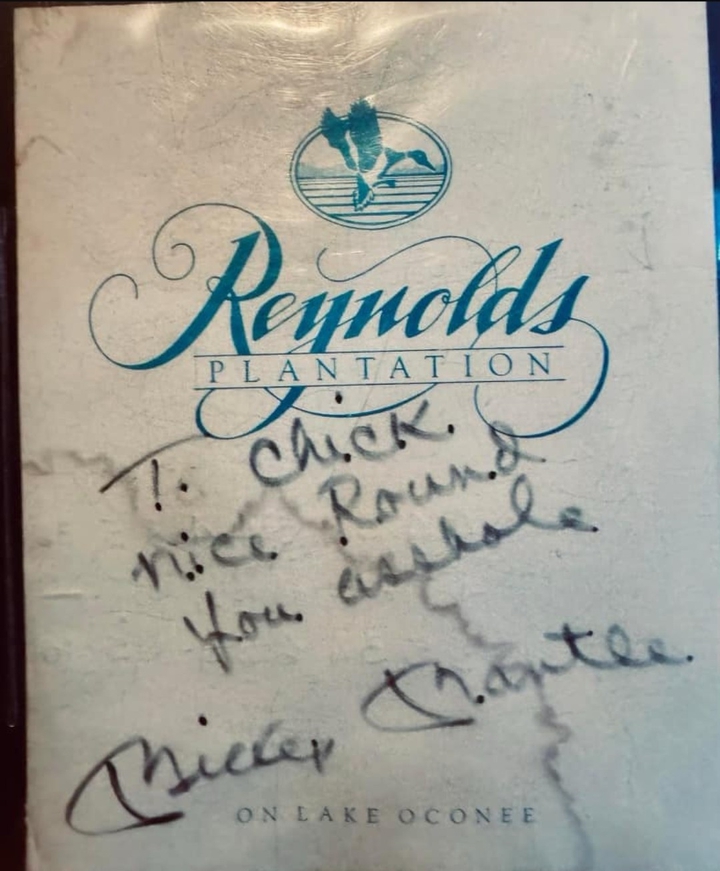 Reynolds
PLANTATION
To Chick
nice Round
you asshole
Mickey Mantle
ON LAKE OCONEE